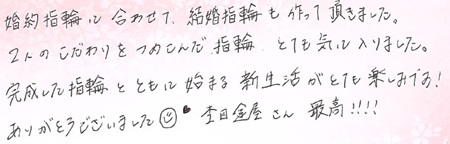 婚約指輪に合わせて、結婚指輪も作って頂きました。
2人のこだわりをつめこんだ指輪、とても気に入りました。
完成した指輪とともに始まる新生活がとても楽しみです!
ありがとうございました☺♥杢目金屋さん最高!!!!